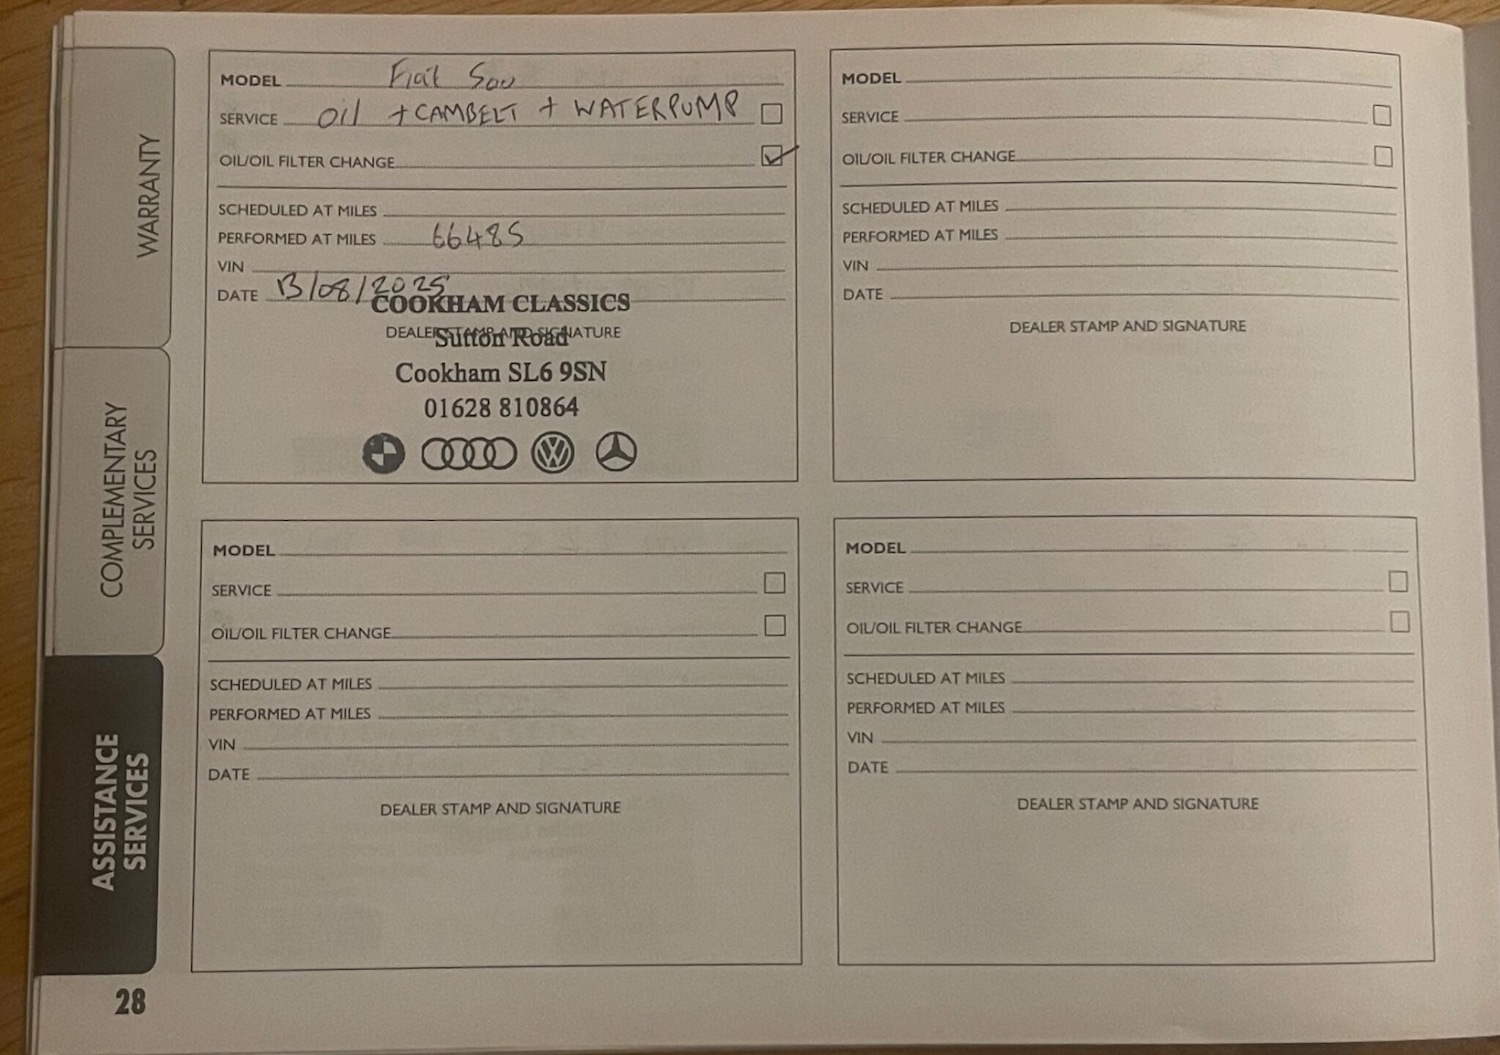 WARRANTY
COMPLEMENTARY
SERVICES
ASSISTANCE
SERVICES
28
MODEL Fiat 500
SERVICE oil + CAMBELT + WATERPUMP
OIL/OIL FILTER CHANGE
SCHEDULED AT MILES
PERFORMED AT MILES 66485
VIN
DATE 13/08/2025
COOKHAM CLASSICS
DEALER STAMP AND SIGNATURE
Sutton Road
Cookham SL6 9SN
01628 810864
MODEL
SERVICE
OIL/OIL FILTER CHANGE
SCHEDULED AT MILES
PERFORMED AT MILES
VIN
DATE
DEALER STAMP AND SIGNATURE
MODEL
SERVICE
OIL/OIL FILTER CHANGE
SCHEDULED AT MILES
PERFORMED AT MILES
VIN
DATE
DEALER STAMP AND SIGNATURE
MODEL
SERVICE
OIL/OIL FILTER CHANGE
SCHEDULED AT MILES
PERFORMED AT MILES
VIN
DATE
DEALER STAMP AND SIGNATURE